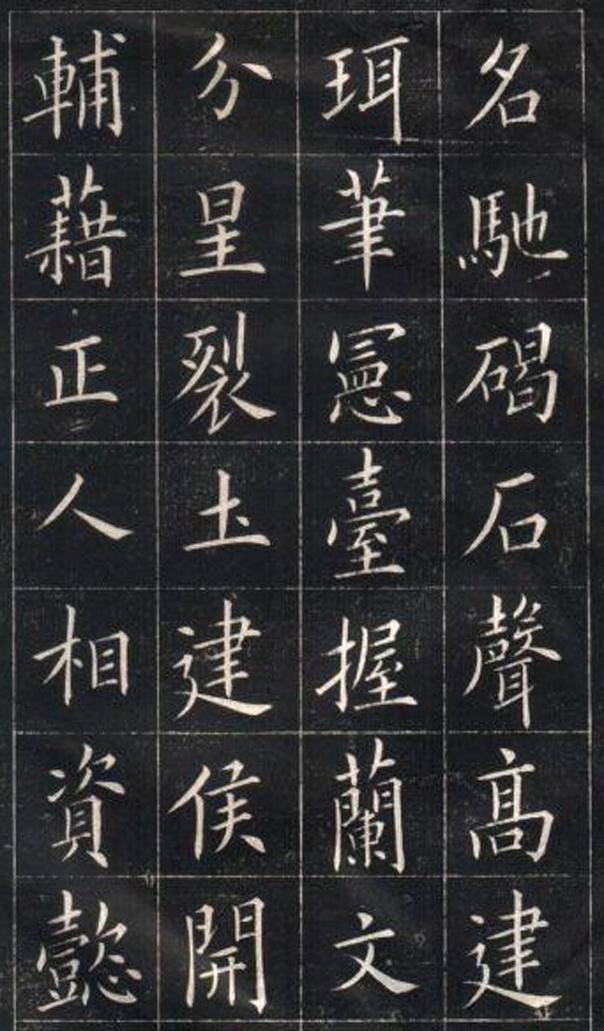 名馳碣石聲高建
珥筆憲臺握蘭文
分星裂土建侯開
輔藉正人相資懿